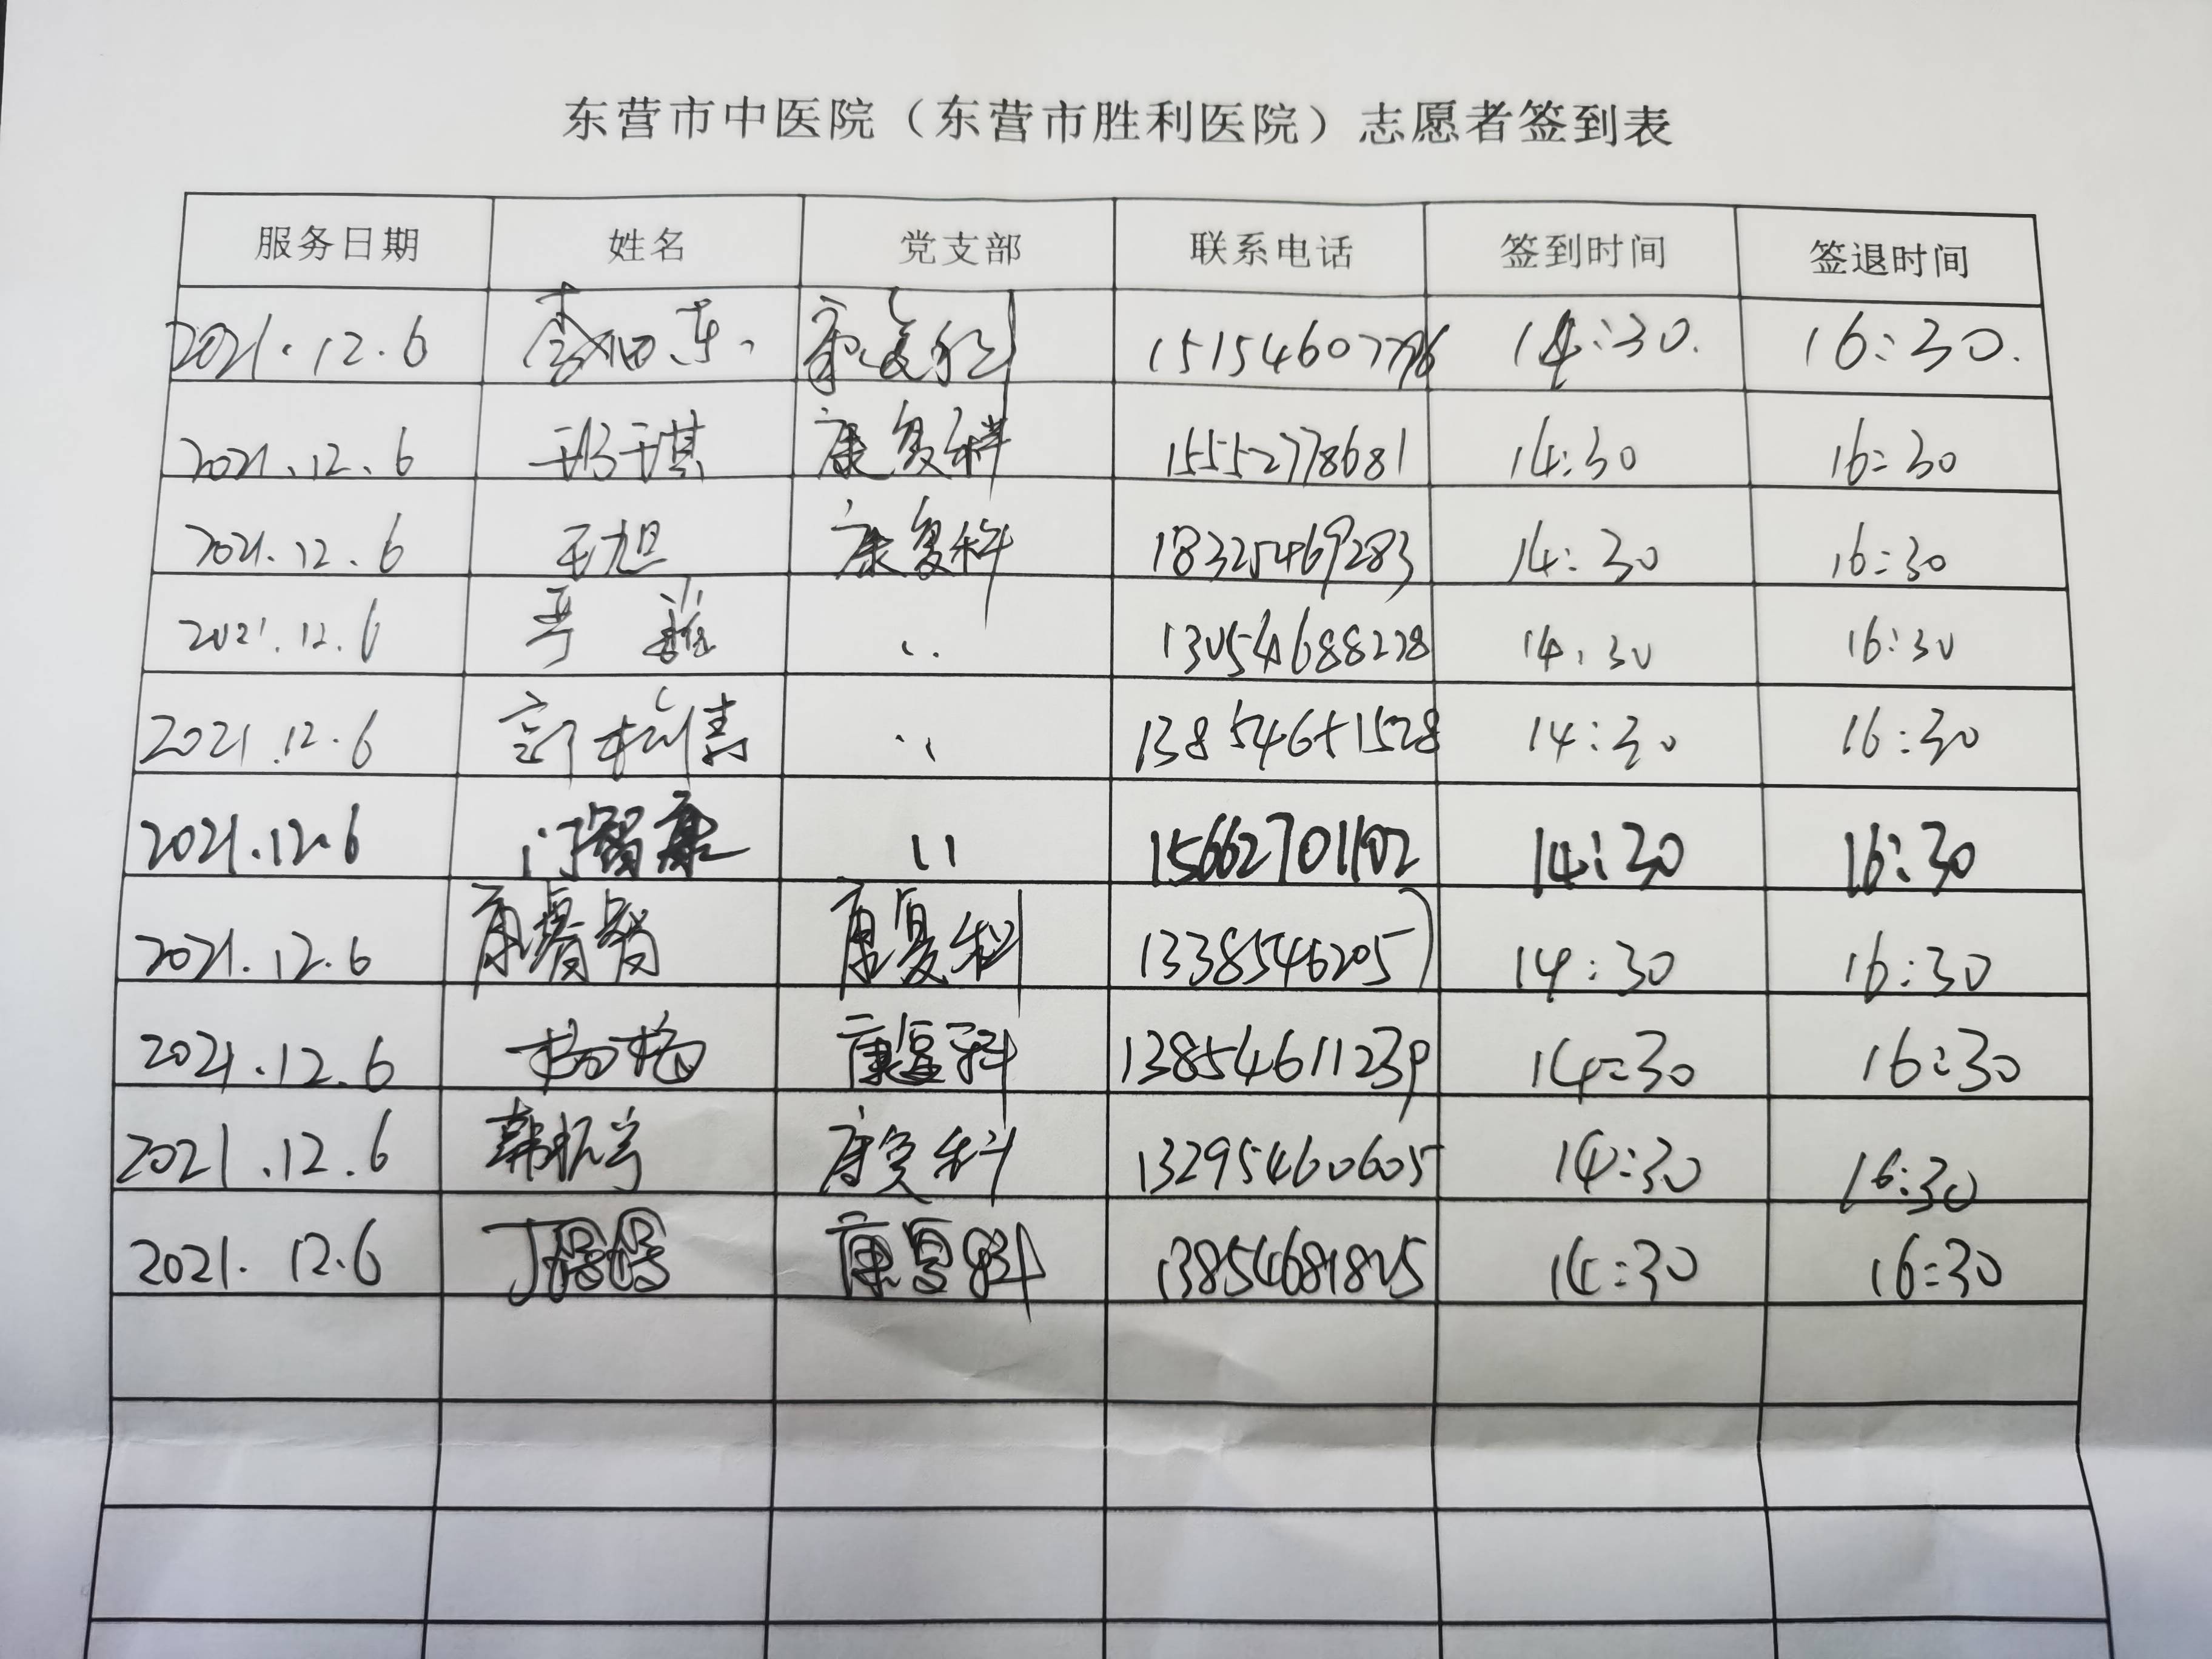 东营市中医院（东营市胜利医院）志愿者签到表
服务日期 姓名 党支部 联系电话 签到时间 签退时间
2021.12.6 康复科 14:30. 16:30.
2021.12.6 康复科 15552778681 14:30 16:30
2021.12.6 王旭 康复科 18325469283 14:30 16:30
2021.12.6 〃 13054688278 14:30 16:30
2021.12.6 〃 13854651528 14:30 16:30
2021.12.6 门智康 〃 15662701102 14:30 16:30
2021.12.6 康复科 13385462057 14:30 16:30
2021.12.6 杨梅 康复科 13854611239 14:30 16:30
2021.12.6 康复科 13295460605 14:30 16:30
2021.12.6 康复科 13854681825 14:30 16:30